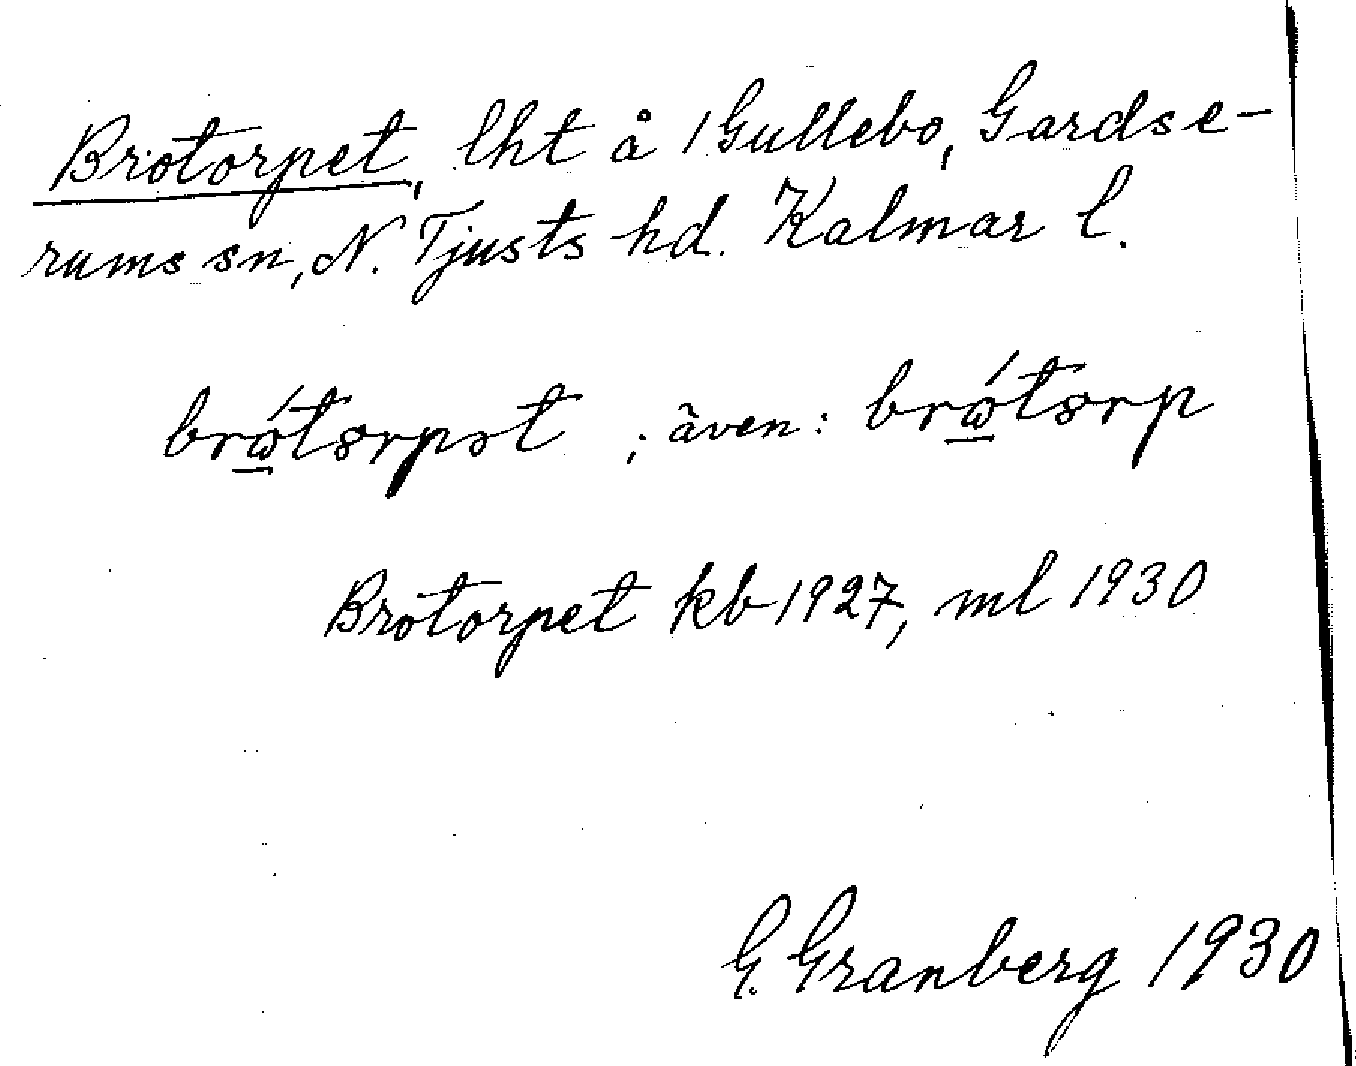 Brotorpet, lht å 1Gullebo, Gardse-
rums sn, N. Tjusts hd. Kalmar l.
; även:
Brotorpet kb 1927, ml 1930
G. Granberg 1930